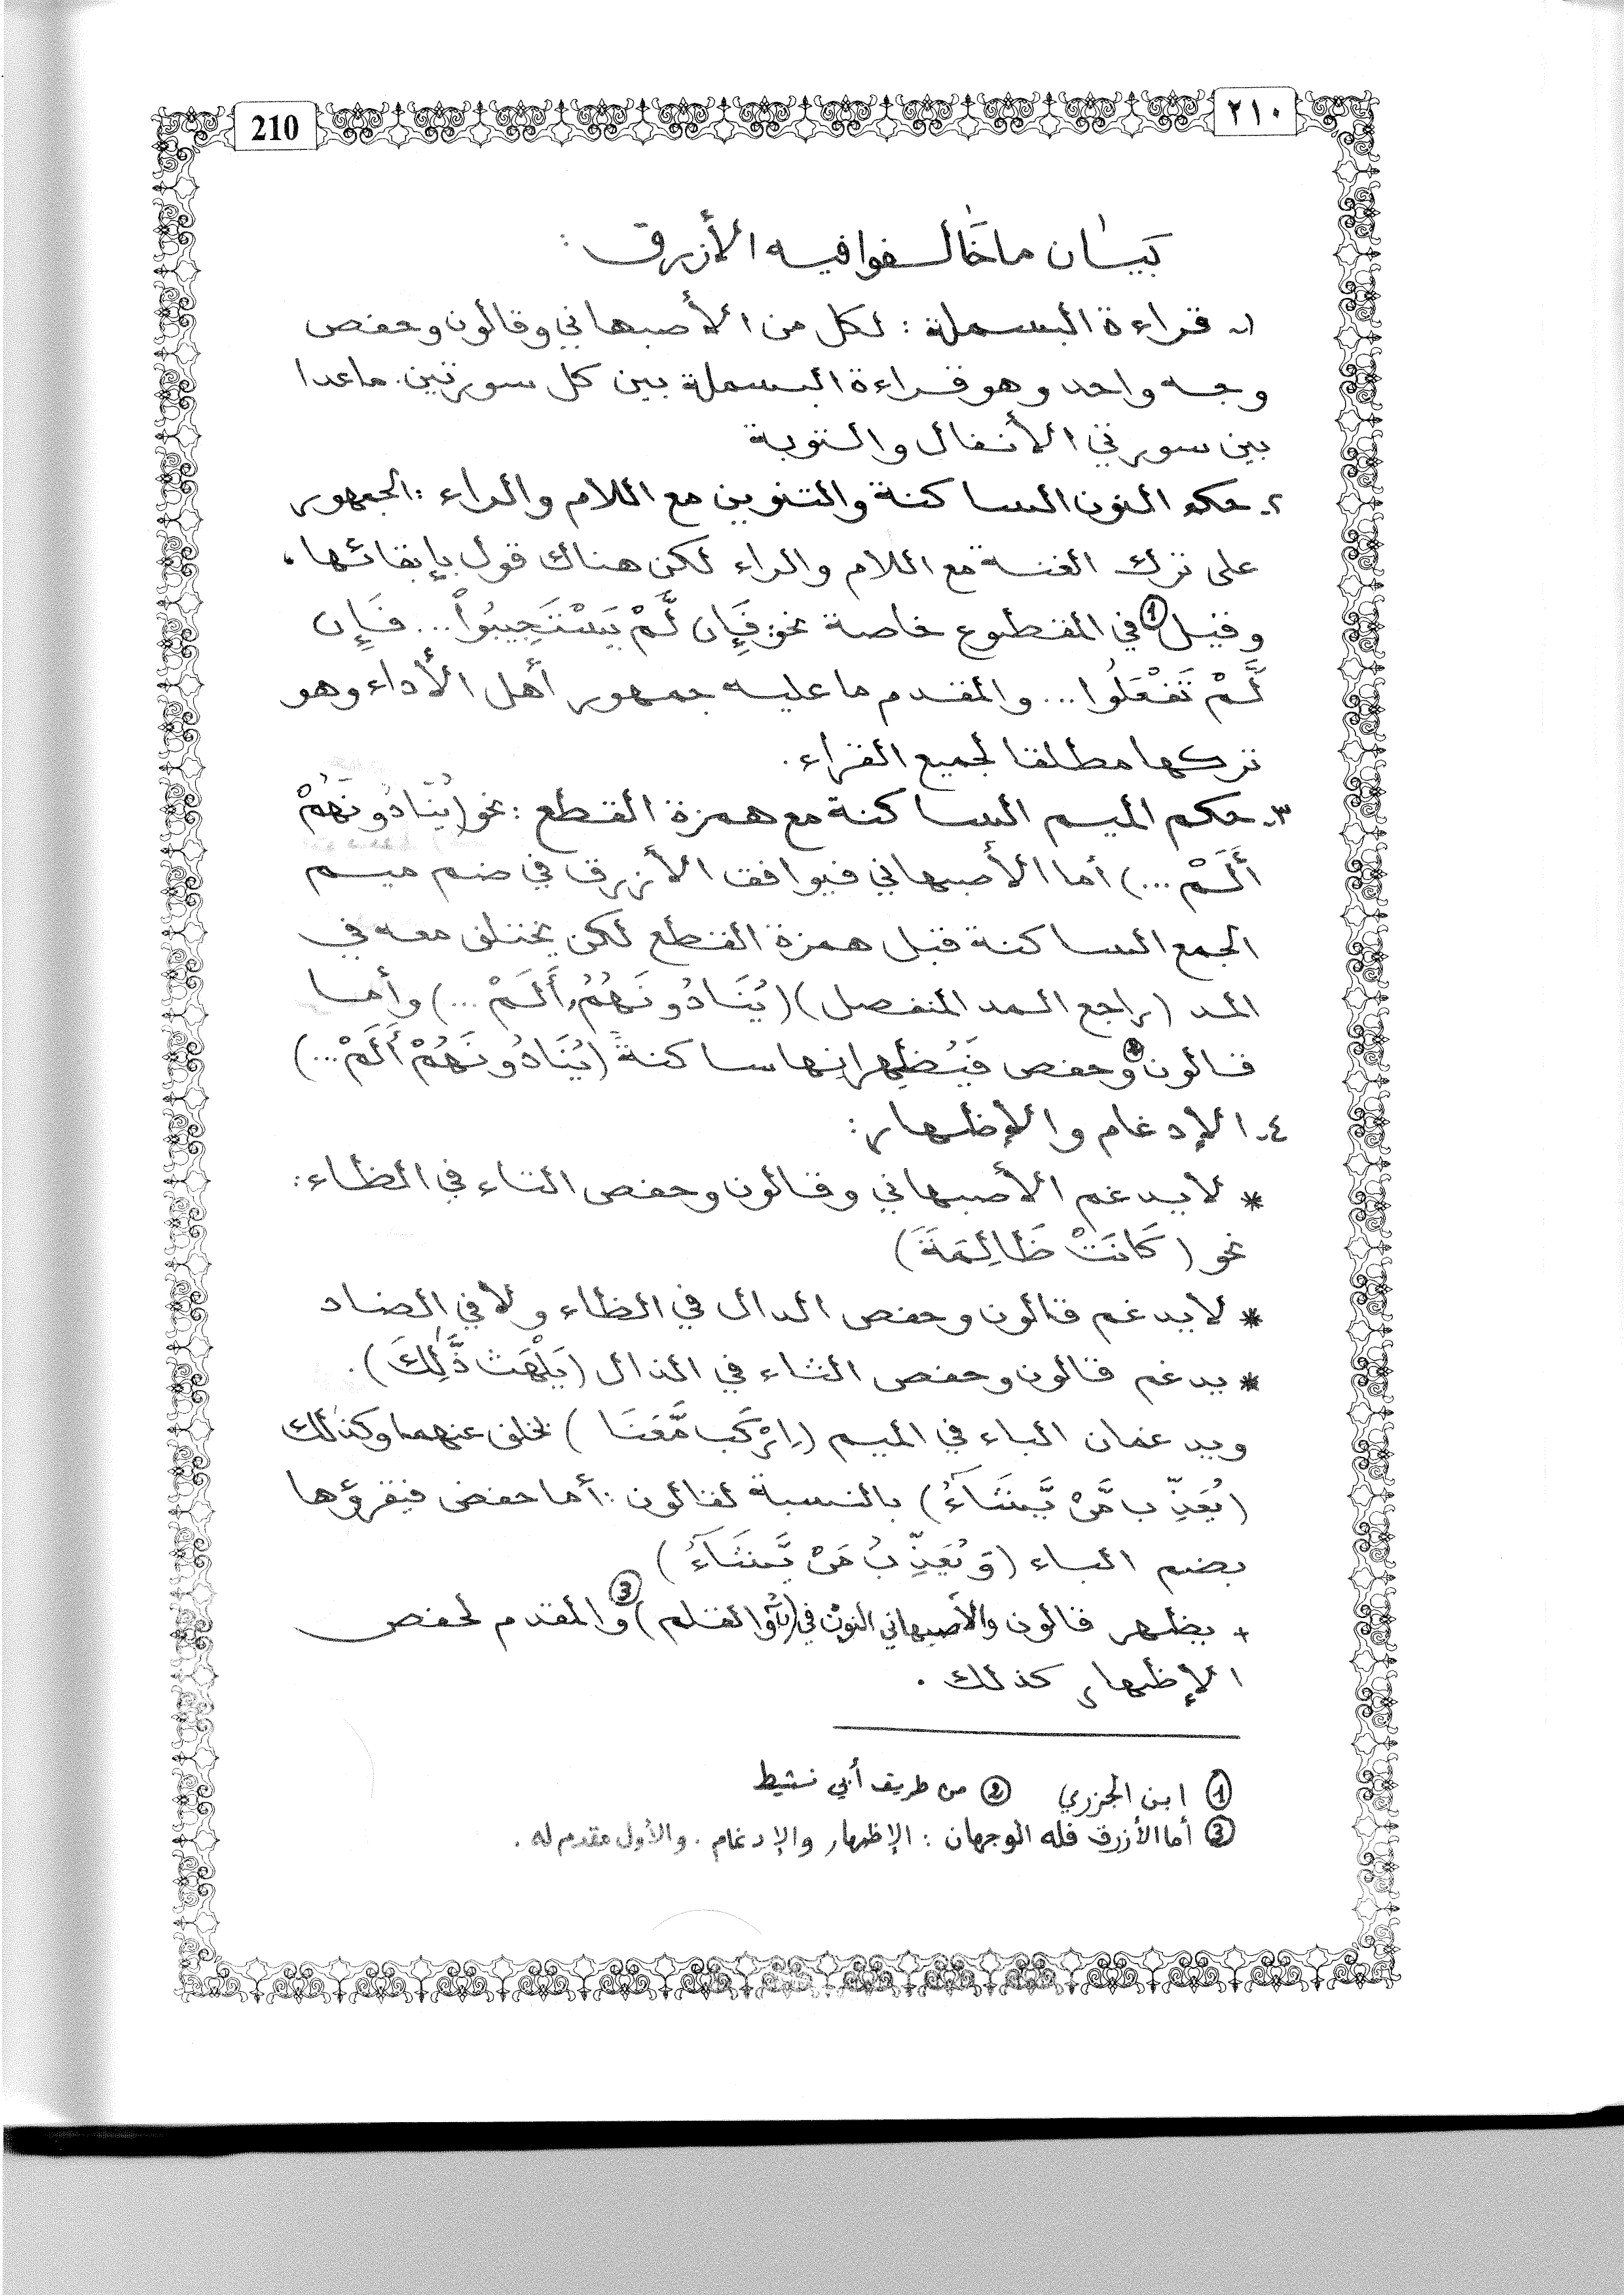 210
٢١٠
بَيَان ما خَالَفوا فيه الأزرق :
١- قراءة البسملة : لكل من الأصبهاني وقالون وحفص
وجه واحد وهو قراءة البسملة بين كل سورتين. ماعدا
بين سورتي الأنفال والتوبة
٢- حكم النون الساكنة والتنوين مع اللام والراء : الجمهور
على ترك الغنة مع اللام والراء لكن هناك قول بإبقائها،
وقيل ① في المقطوع خاصة نحو: فَإِن لَّمْ يَسْتَجِيبُواْ... فَإِن
لَّمْ تَفْعَلُوا ... والمقدم ما عليه جمهور أهل الأداء وهو
تركها مطلقا لجميع القراء .
٣- حكم الميم الساكنة مع همزة القطع : نحو (يُنَادُونَهُمْ
أَلَمْ ...) أما الأصبهاني فيوافق الأزرق في ضم ميم
الجمع الساكنة قبل همزة القطع لكن يختلف معه في
المد (راجع المد المنفصل) (يُنَادُونَهُمُ أَلَمْ ...) وأما
قالون ② وحفص فَيُظهرانها ساكنةً (يُنَادُونَهُمْ أَلَمْ ...)
٤- الإدغام والإظهار :
* لا يدغم الأصبهاني وقالون وحفص التاء في الظاء :
نحو ( كَانَتْ ظَالِمَةً )
* لا يدغم قالون وحفص الدال في الظاء ولا في الضاد
* يدغم قالون وحفص الثاء في الذال (يَلْهَث ذَّٰلِكَ ) .
ويدغمان الباء في الميم (اِرْكَب مَّعَنَا ) بخلف عنهما وكذلك
(يُعَذِّب مَّنْ يَّشَآءُ) بالنسبة لقالون : أما حفص فيقرؤها
بضم الباء (وَيُعَذِّبُ مَنْ يَّشَآءُ )
* يظهر قالون والأصبهاني النون في (نٓ والقلم ) ③ والمقدم لحفص
الإظهار كذلك .
① ابن الجزري ② من طريق أبي نشيط
③ أما الأزرق فله الوجهان : الإظهار والإدغام . والأول مقدم له .